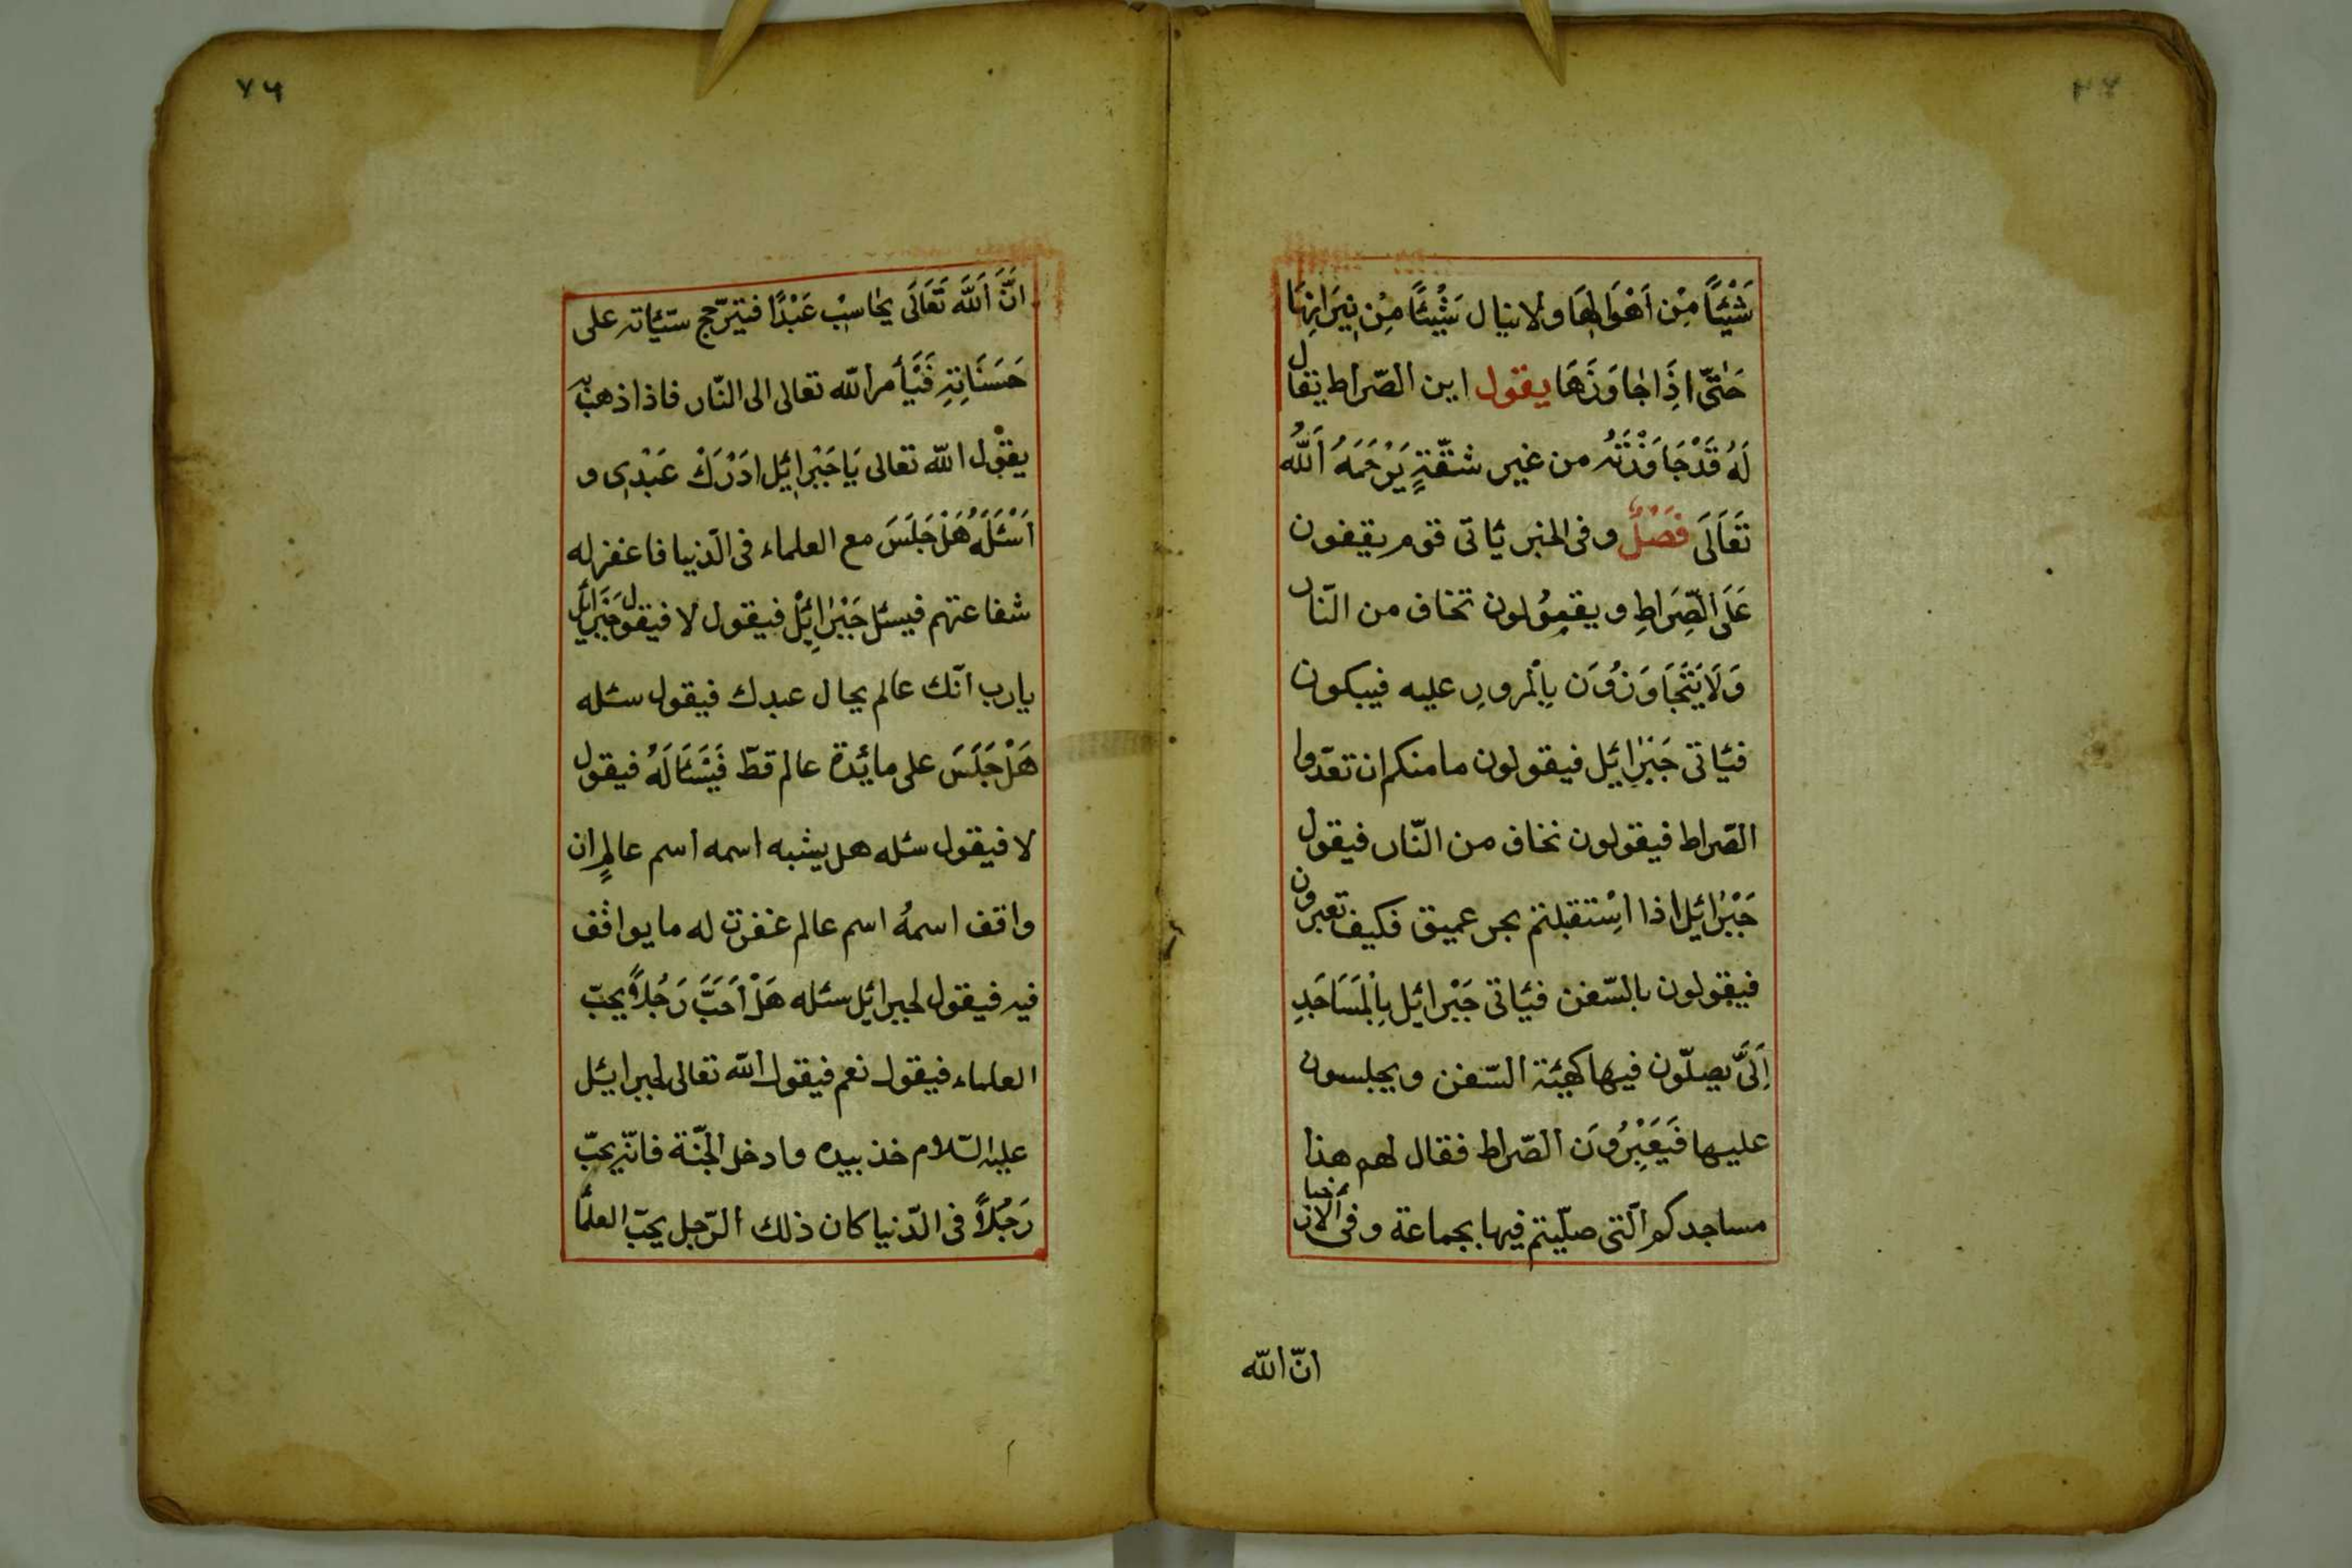 شَيْئًا مِنْ اَهْوَالِهَا ولا ينال شَيْئًا مِنْ نِيَرانِهَا
حَتّى اذَا جَاوَزَهَا يقول اين الصّراط يقال
لَهُ قَدْ جَاوَزْتَهُ من غير شقّةٍ يَرْحَمَهُ اَللّٰه
تَعَالَى فَصْلٌ وفى الخبر يَاتى قوم يقفون
عَلَى الصِّرَاطِ ويقعوُلون تخاف من النّار
وَلَا يَتَجَاوَزُوَن بِاْلمرورِ عليه فيبكون
فيَاتى جَبَرٰائيل فيقولون ما منكم ان تعدّوا
الصّراط فيقولون نخاف من النّار فيقول
جَبْرٰائيل اذا اسْتقبلتم بحر عميق فكيف تعبرون
فيقولون بالسّفن فيَاتى جَبْرائيل بِاْلمَسَاجَدِ
اِلَىَّ يصلّون فيها كهيئة السّفن ويجلسون
عليها فَيَعْبِرُوَن الصّراط فقال لهم هذا
مساجدكم الّتى صلّيتم فيها بجماعة وفى الاخبار
انّ الله
٧٦
انَّ اَللَّه تَعَالَى يحٰاسِبْ عَبْدًا فيترّجح سيّئاته على
حَسَنَاتِهِ فَيَأمر اللّه تعالى الى النّار فاذا ذهب به
يقوْل اللّه تعالى يَا جَبْرائيل ادَرَكْ عَبْدِى و
اَسْئَلَهُ هَلْ جَلَسَ مع العلماء فى الدّنيا فاغفر له
شفاعتهم فيسئل جَبْرٰائِيلْ فيقول لا فيقول جَبَرَائيل
يارب انّك عالم بحال عبدك فيقول سئله
هَلْ جَلَسَ على مائدة عالم قطّ فَيَسَالَهُ فيقول
لا فيقول سئله هل يشبه اسمه اسم عالمٍ ان
واقف اسمهُ اسم عالم غفرت له ما يوافق
فيه فيقول لجبرائيل سئله هَلْ اَحَبَّ رَجُلاً يحبّ
العلماء فيقول نعم فيقول اللّه تعالى لجبرائيل
عليه السّلام خذ بيده وادخل الجنّة فانّه يحبّ
رَجُلاً فى الدّنيا كان ذلك الرّجل يحبّ العلمأ